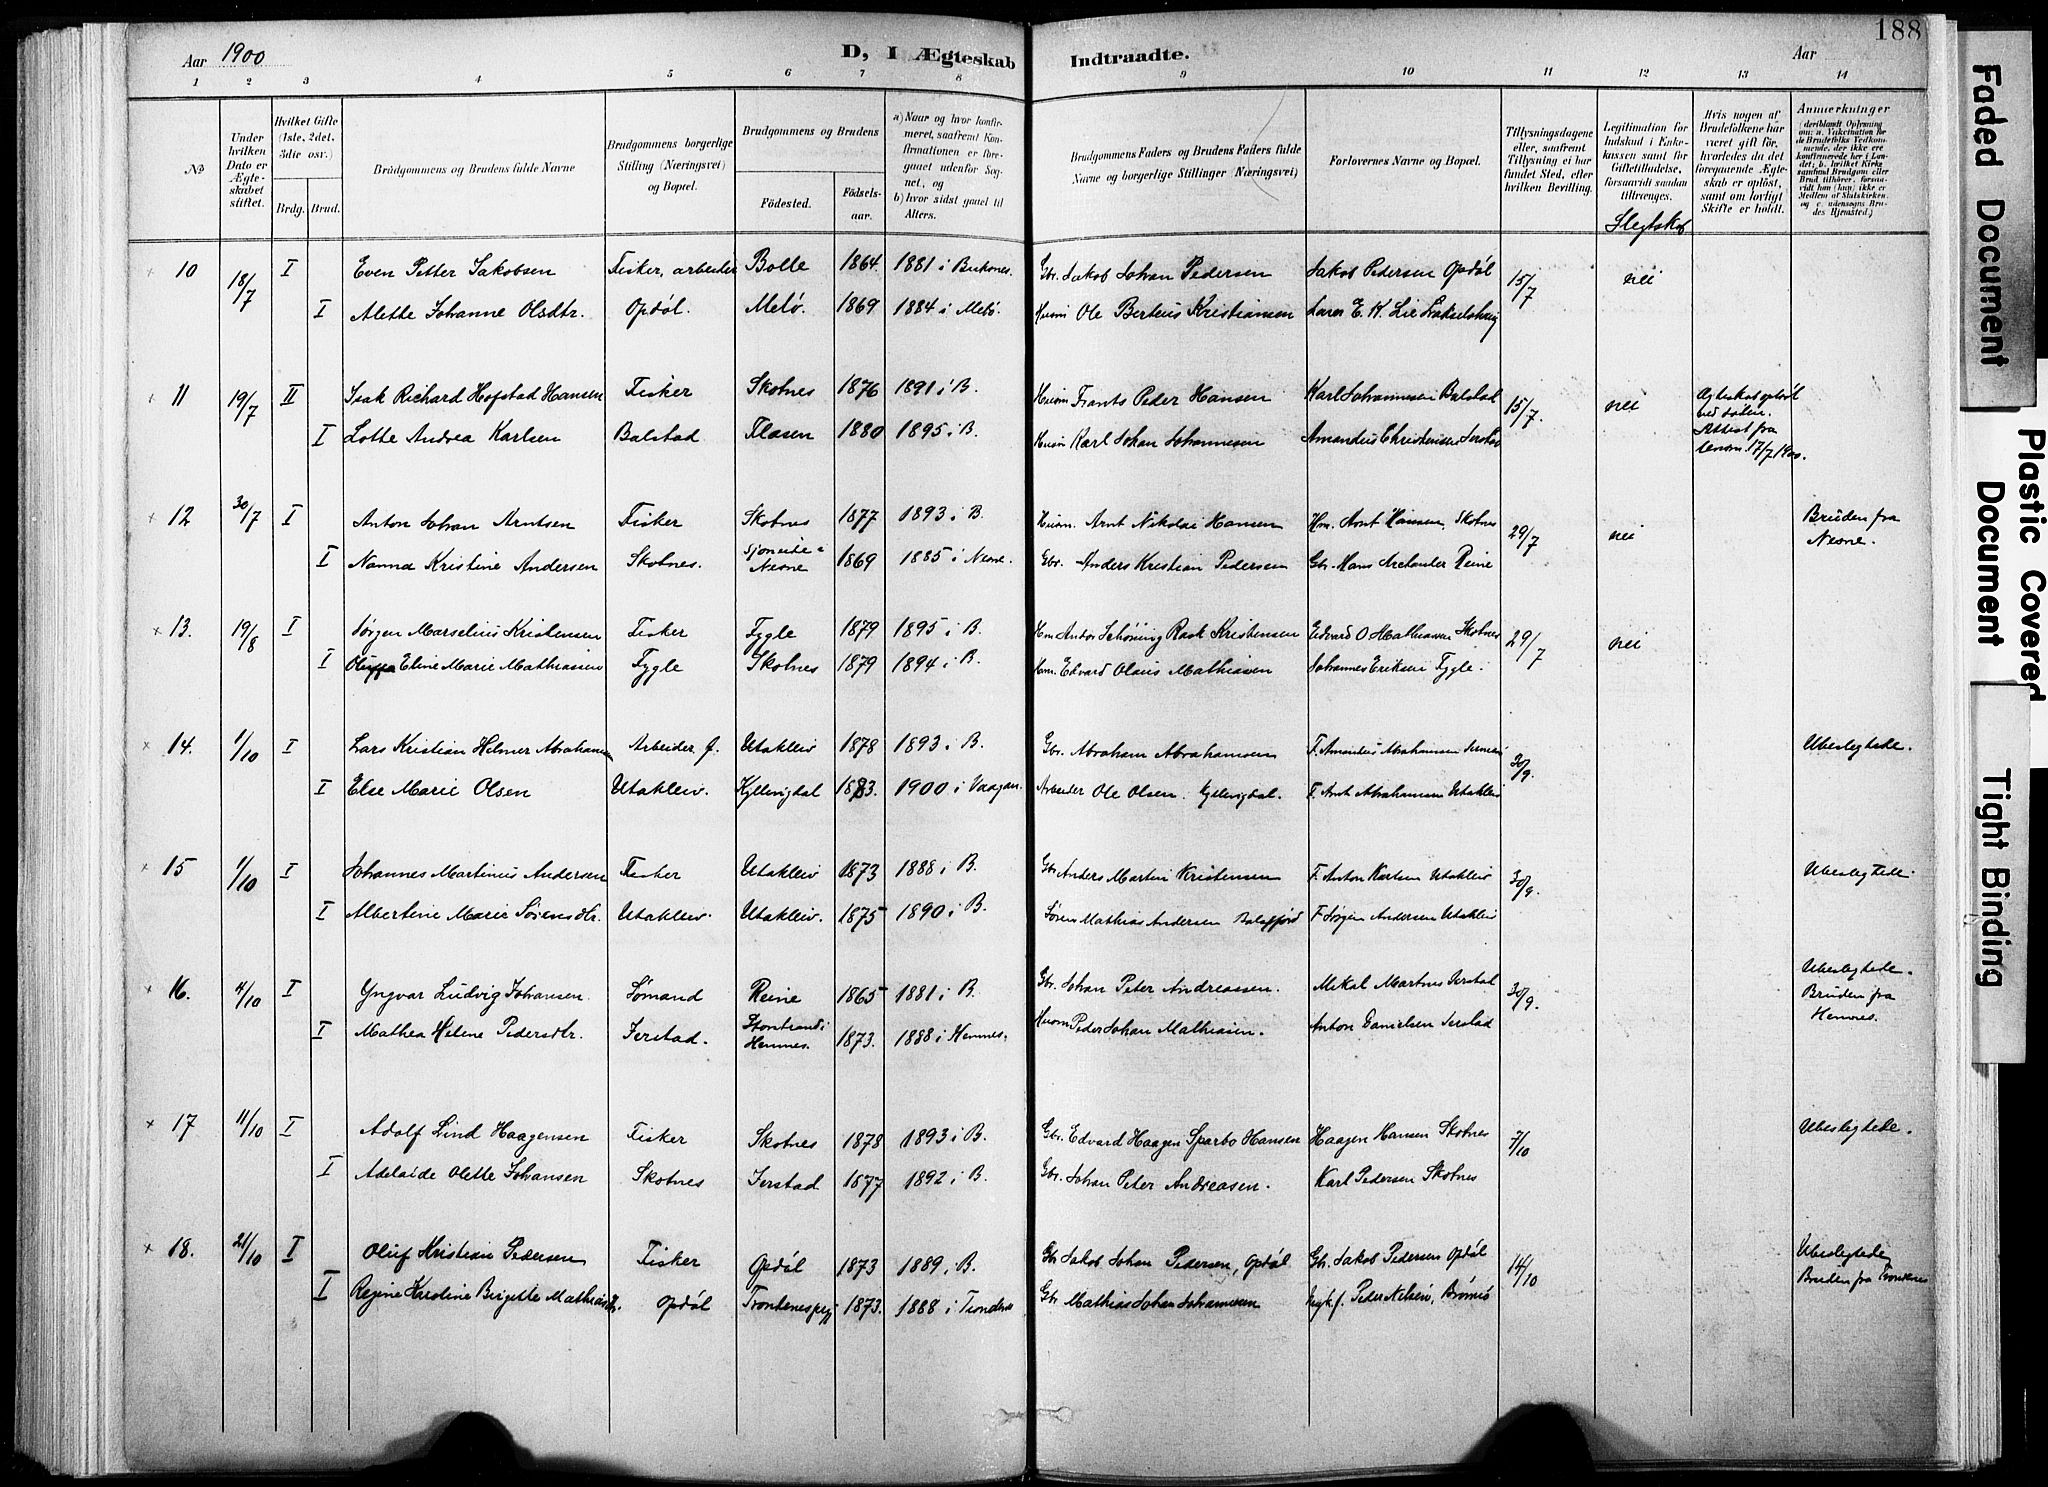 188
Aar 1900
D, I Ægteskab Indtraadte.
Aar
1 2 3 4 5 6 7 8 9 10 11 12 13 14
No
Under hvilken Dato er Ægteskabet stiftet.
Hvilket Gifte (1ste, 2det, 3die osv.)
Brdg. Brud.
Brudgommens og Brudens fulde Navne
Brudgommens borgerlige Stilling (Næringsvei) og Bopæl.
Brudgommens og Brudens
Födested.
Födselsaar.
a) Naar og hvor konfirmeret, saafremt Konfirmationen er foregaaet udenfor Sognet, og
b) hvor sidst gaaet til Alters.
Brudgommens Faders og Brudens Faders fulde Navne og borgerlige Stillinger (Næringsvei)
Forlovernes Navne og Bopæl.
Tillysningsdagene eller, saafremt Tillysning ei har fundet Sted, efter hvilken Bevilling.
Legitimation for Indskud i Enkekassen samt for Giftetilladelse, forsaavidt saadan tiltrænges.
Slegtskab
Hvis nogen af Brudefolkene har været gift för, hvorledes da det foregaaende Ægteskab er oplöst, samt om lovligt Skifte er holdt.
Anmerkninger
10 18/7 I Even Petter Jakobsen Fisker, arbeider Bolle 1864 1881 i Buksnes. Gbr. Jakob Johan Pedersen Jakob Pedersen Opdøl 15/7 nei
I Alette Johanne Olsdtr. Opdøl. Melø. 1869 1884 i Melø. Husm Ole Berteus Kristiansen Lars E. K. Lie
11 19/7 II Isak Richard Hofstad Hansen Fisker Skotnes 1876 1891 i B. Husm Frants Peder Hansen Karl Johannesen Balstad 15/7. nei
I Lotte Andrea Karlsen Balstad Flasen 1880 1895 i B. Husm Karl Johan Johannesen Amandus Christensen
Attest fra 17/7 1900.
12 30/7 I Anton Johan Arntsen Fisker Skotnes 1877 1893 i B. Husm. Arnt Nikolai Hansen Hm. Arnt Hansen, Skotnes 29/7 nei Bruden fra Nesne.
I Nanna Kristine Andersen Skotnes. i Nesne 1869 1885 i Nesne. Gbr. Anders Kristian Pedersen Gbr. Hans Reine
13. 19/8 I Jørgen Marselius Kristensen Fisker Fygle 1879 1895 i B. Hm Andor Schöning Rask Kristensen Edvard O Mathiasen Skotnes 29/7 nei
I Eline Marie Mathiassen Fygle Skotnes 1879 1894 i B. Hm. Edvard Olaus Mathiasen Johannes Eriksen Fygle.
14. 1/10 I Lars Kristian Helmer Abrahamsen Arbeider f. Utakleiv 1878 1893 i B. Gbr. Abraham Abrahamsen F. Amandus Abrahamsen 30/9. Ubeslegtede.
I Else Marie Olsen Utakleiv. 1883. 1900 i Vaagan. Arbeider Ole Olsen. F. Arnt Abrahamsen Utakleiv
15 1/10 I Johannes Martinus Andersen Fisker Utakleiv 1873 1888 i B. Gbr Anders Martin Kristensen F. Anton Karlsen Utakleiv 30/9. Ubeslegtede.
I Albertine Marie Sørensdtr. Utakleiv. Utakleiv. 1875 1890 i B. Søren Mathias Andersen F. Jørgen Andersen Utakleiv
16. 4/10 I Yngvar Ludvig Johansen. Sømand Reine 1865 1881 i B. Gbr. Johan Peter Andreassen. Mikal Martinus Jerstad 30/9. Ubeslegtede. Bruden fra Hemnes.
I Mathea Helene Pedersdtr. Jerstad. i Hemnes. 1873. 1888 i Hemnes. Husm Peder Johan Mathiasen. Anton Danielsen Jerstad
17 11/10 I Adolf Lind Haagensen Fisker Skotnes 1878 1893 i B. Gbr. Edvard Haagen Sparbo Hansen Haagen Hansen Skotnes 7/10 Ubeslegtede.
I Adelaide Olette Johansen Skotnes Jerstad 1877 1892 i B. Gbr. Johan Peter Andreasen. Karl Pedersen Skotnes
18. 21/10 I Oluf Kristian Pedersen Fisker Opdøl 1873 1889 i B. Gbr Jakob Johan Pedersen, Opdøl Gbr. Jakob Pedersen Opdøl 14/10 Ubeslegtede Bruden fra Trondenes
I Regine Karoline Birgitte Mathiasdtr. Opdøl 1873. 1888 i Trondenes Gbr Mathias Johan Johannesen Peder Nelsen,
Faded Document
Plastic Covered Document
Tight Binding